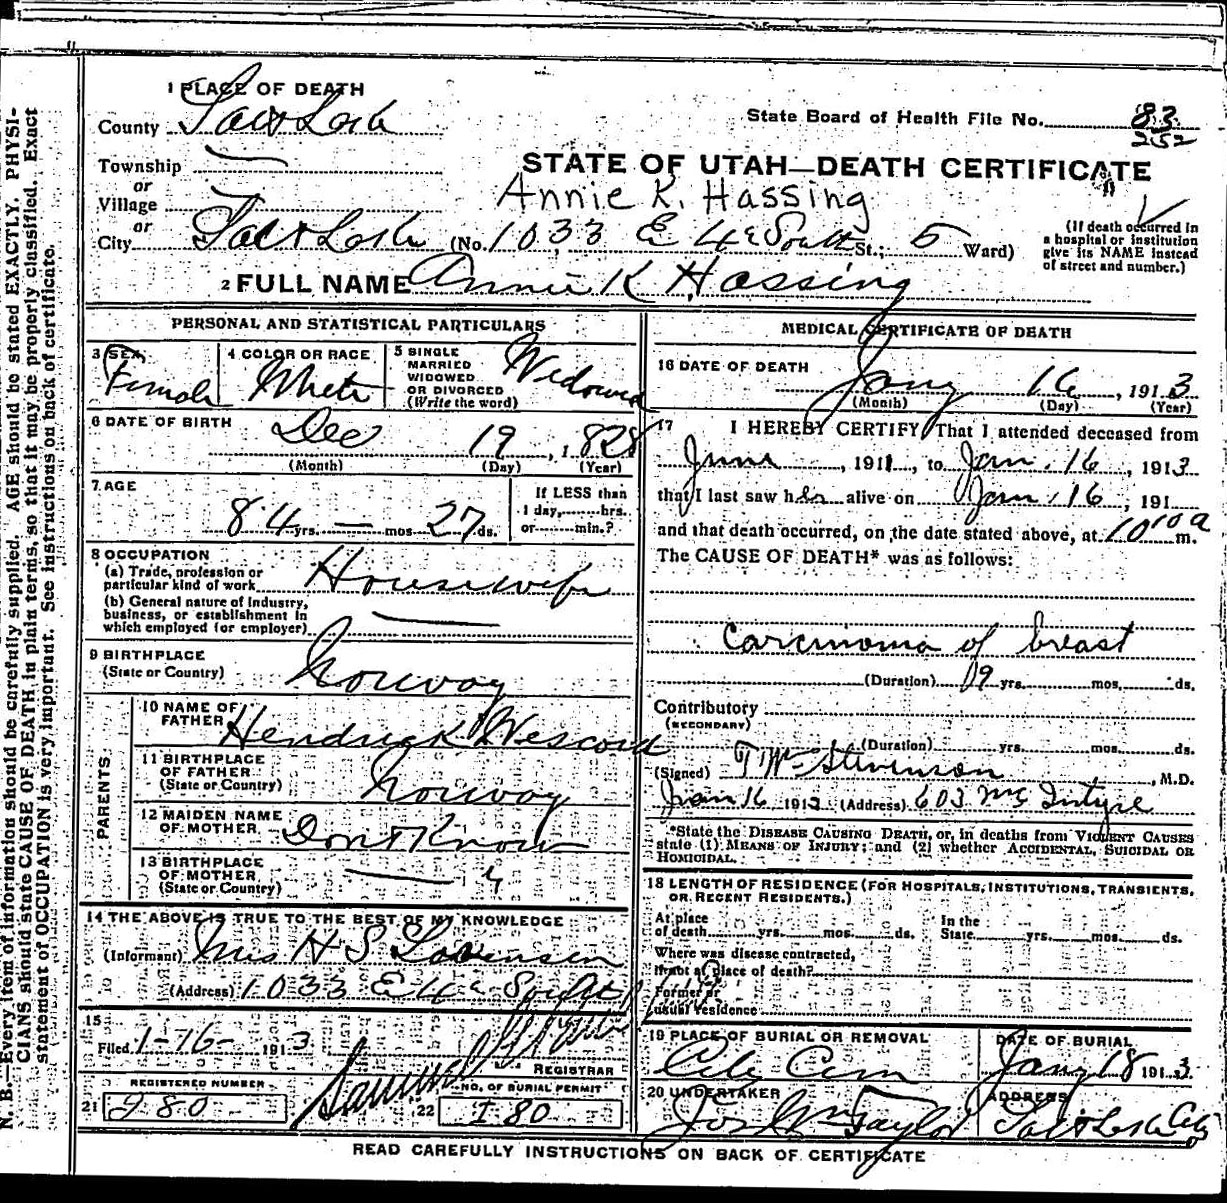 N. B.—Every item of information should be carefully supplied. AGE should be stated EXACTLY. PHYSI-
CIANS should state CAUSE OF DEATH in plain terms, so that it may be properly classified. Exact
statement of OCCUPATION is very important. See instructions on back of certificate.
1 PLACE OF DEATH
County Salt Lake
State Board of Health File No. 83
252
Township
or
Village
or
STATE OF UTAH—DEATH CERTIFICATE
Annie K. Hassing
City Salt Lake (No. 1033 E 4th South St.; 5 Ward)
(If death occurred in
a hospital or institution
give its NAME instead
of street and number.)
2 FULL NAME Annie K Hassing
PERSONAL AND STATISTICAL PARTICULARS
3 SEX Female
4 COLOR OR RACE White
5 SINGLE
MARRIED
WIDOWED
OR DIVORCED
(Write the word) Widowed
6 DATE OF BIRTH
Dec 19, 1828
(Month) (Day) (Year)
7 AGE
84 yrs. — mos. 27 ds.
If LESS than
1 day, hrs.
or min.?
8 OCCUPATION
(a) Trade, profession or
particular kind of work Housewife
(b) General nature of industry,
business, or establishment in
which employed (or employer)
9 BIRTHPLACE
(State or Country) Norway
PARENTS
10 NAME OF
FATHER Hendrick
11 BIRTHPLACE
OF FATHER
(State or Country) Norway
12 MAIDEN NAME
OF MOTHER Dont Know
13 BIRTHPLACE
OF MOTHER
(State or Country) — "
14 THE ABOVE IS TRUE TO THE BEST OF MY KNOWLEDGE
(Informant) Mrs H S
(Address) 1033 E 4th South
15
Filed 1-16- 1913
REGISTRAR
REGISTERED NUMBER
21 I 80
NO. OF BURIAL PERMIT
22 I 80
MEDICAL CERTIFICATE OF DEATH
16 DATE OF DEATH
Jany 16, 1913
(Month) (Day) (Year)
17 I HEREBY CERTIFY, That I attended deceased from
June, 1911, to Jan. 16, 1913
that I last saw her alive on Jan. 16, 191
and that death occurred, on the date stated above, at 10 10 a m.
The CAUSE OF DEATH* was as follows:
Carcinoma of breast
(Duration) 19 yrs. mos. ds.
Contributory
(SECONDARY)
(Duration) yrs. mos. ds.
(Signed) Stevenson, M.D.
Jan 16 1913 (Address) 603 McIntyre
*State the DISEASE CAUSING DEATH, or, in deaths from VIOLENT CAUSES
state (1) MEANS OF INJURY; and (2) whether ACCIDENTAL, SUICIDAL OR
HOMICIDAL.
18 LENGTH OF RESIDENCE (FOR HOSPITALS, INSTITUTIONS, TRANSIENTS,
OR RECENT RESIDENTS.)
At place
of death yrs. mos. ds.
In the
State yrs. mos. ds.
Where was disease contracted,
if not at place of death?
Former or
usual residence
19 PLACE OF BURIAL OR REMOVAL
City Cem
DATE OF BURIAL
Jany 18 1913
20 UNDERTAKER
Jos Wm Taylor
ADDRESS
Salt Lake City
READ CAREFULLY INSTRUCTIONS ON BACK OF CERTIFICATE